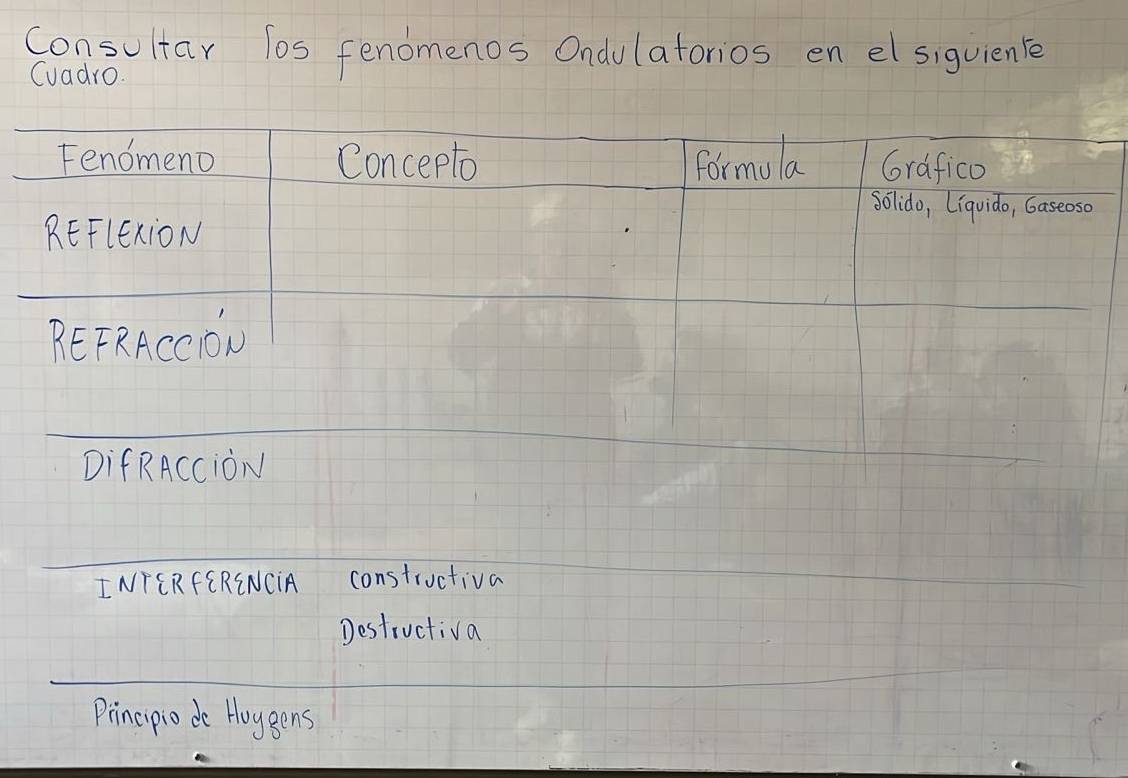 Consultar los fenómenos Ondulatorios en el siguiente
Cuadro.
Fenómeno Concepto Fórmula Gráfico
Sólido, Líquido, Gaseoso
REFLEXION
REFRACCIÓN
DIFRACCIÓN
INTERFERENCIA constructiva
Destructiva
Principio de Huygens